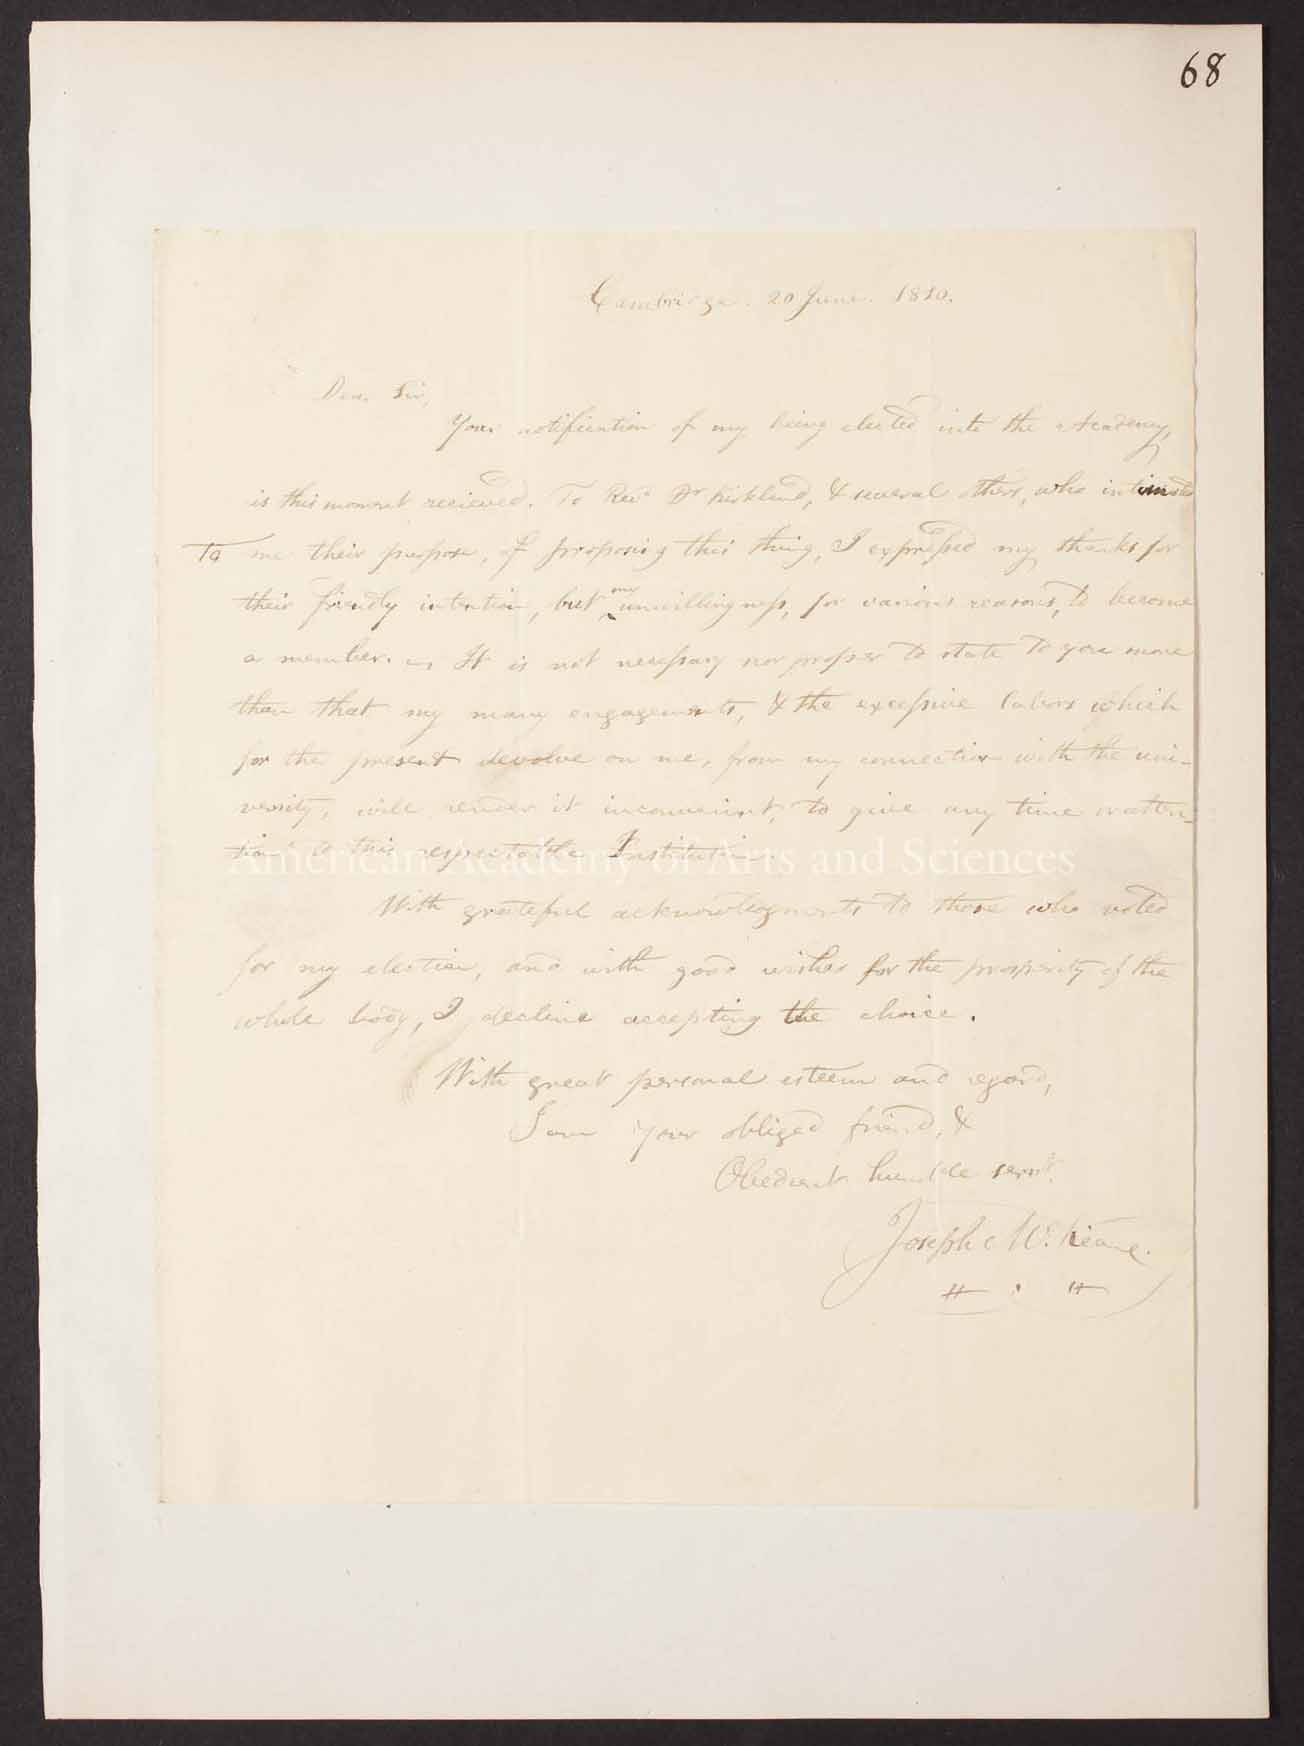 68
Cambridge. 20 June. 1810.
Dear Sir,
Your notification of my being elected into the Academy,
is this moment recieved. To Revd Dr Kirkland, & several others, who intimated
To me their purpose, of proposing this thing, I expressed my thanks for
their friendly intention, but my unwillingness, for various reasons, to become
a member. It is not necessary nor proper to state to you more
than that my many engagements, & the excessive labors which
for the present devolve on me, from my connection with the uni-
versity, will render it inconvenient, to give any time or atten-
tion to this respectable Institution.
American Academy of Arts and Sciences
With grateful acknowledgments to those who voted
for my election, and with good wishes for the prosperity of the
whole body, I decline accepting the choice.
With great personal esteem and regard,
I am your obliged friend, &
Obedient humble servt.
Joseph McKeane.